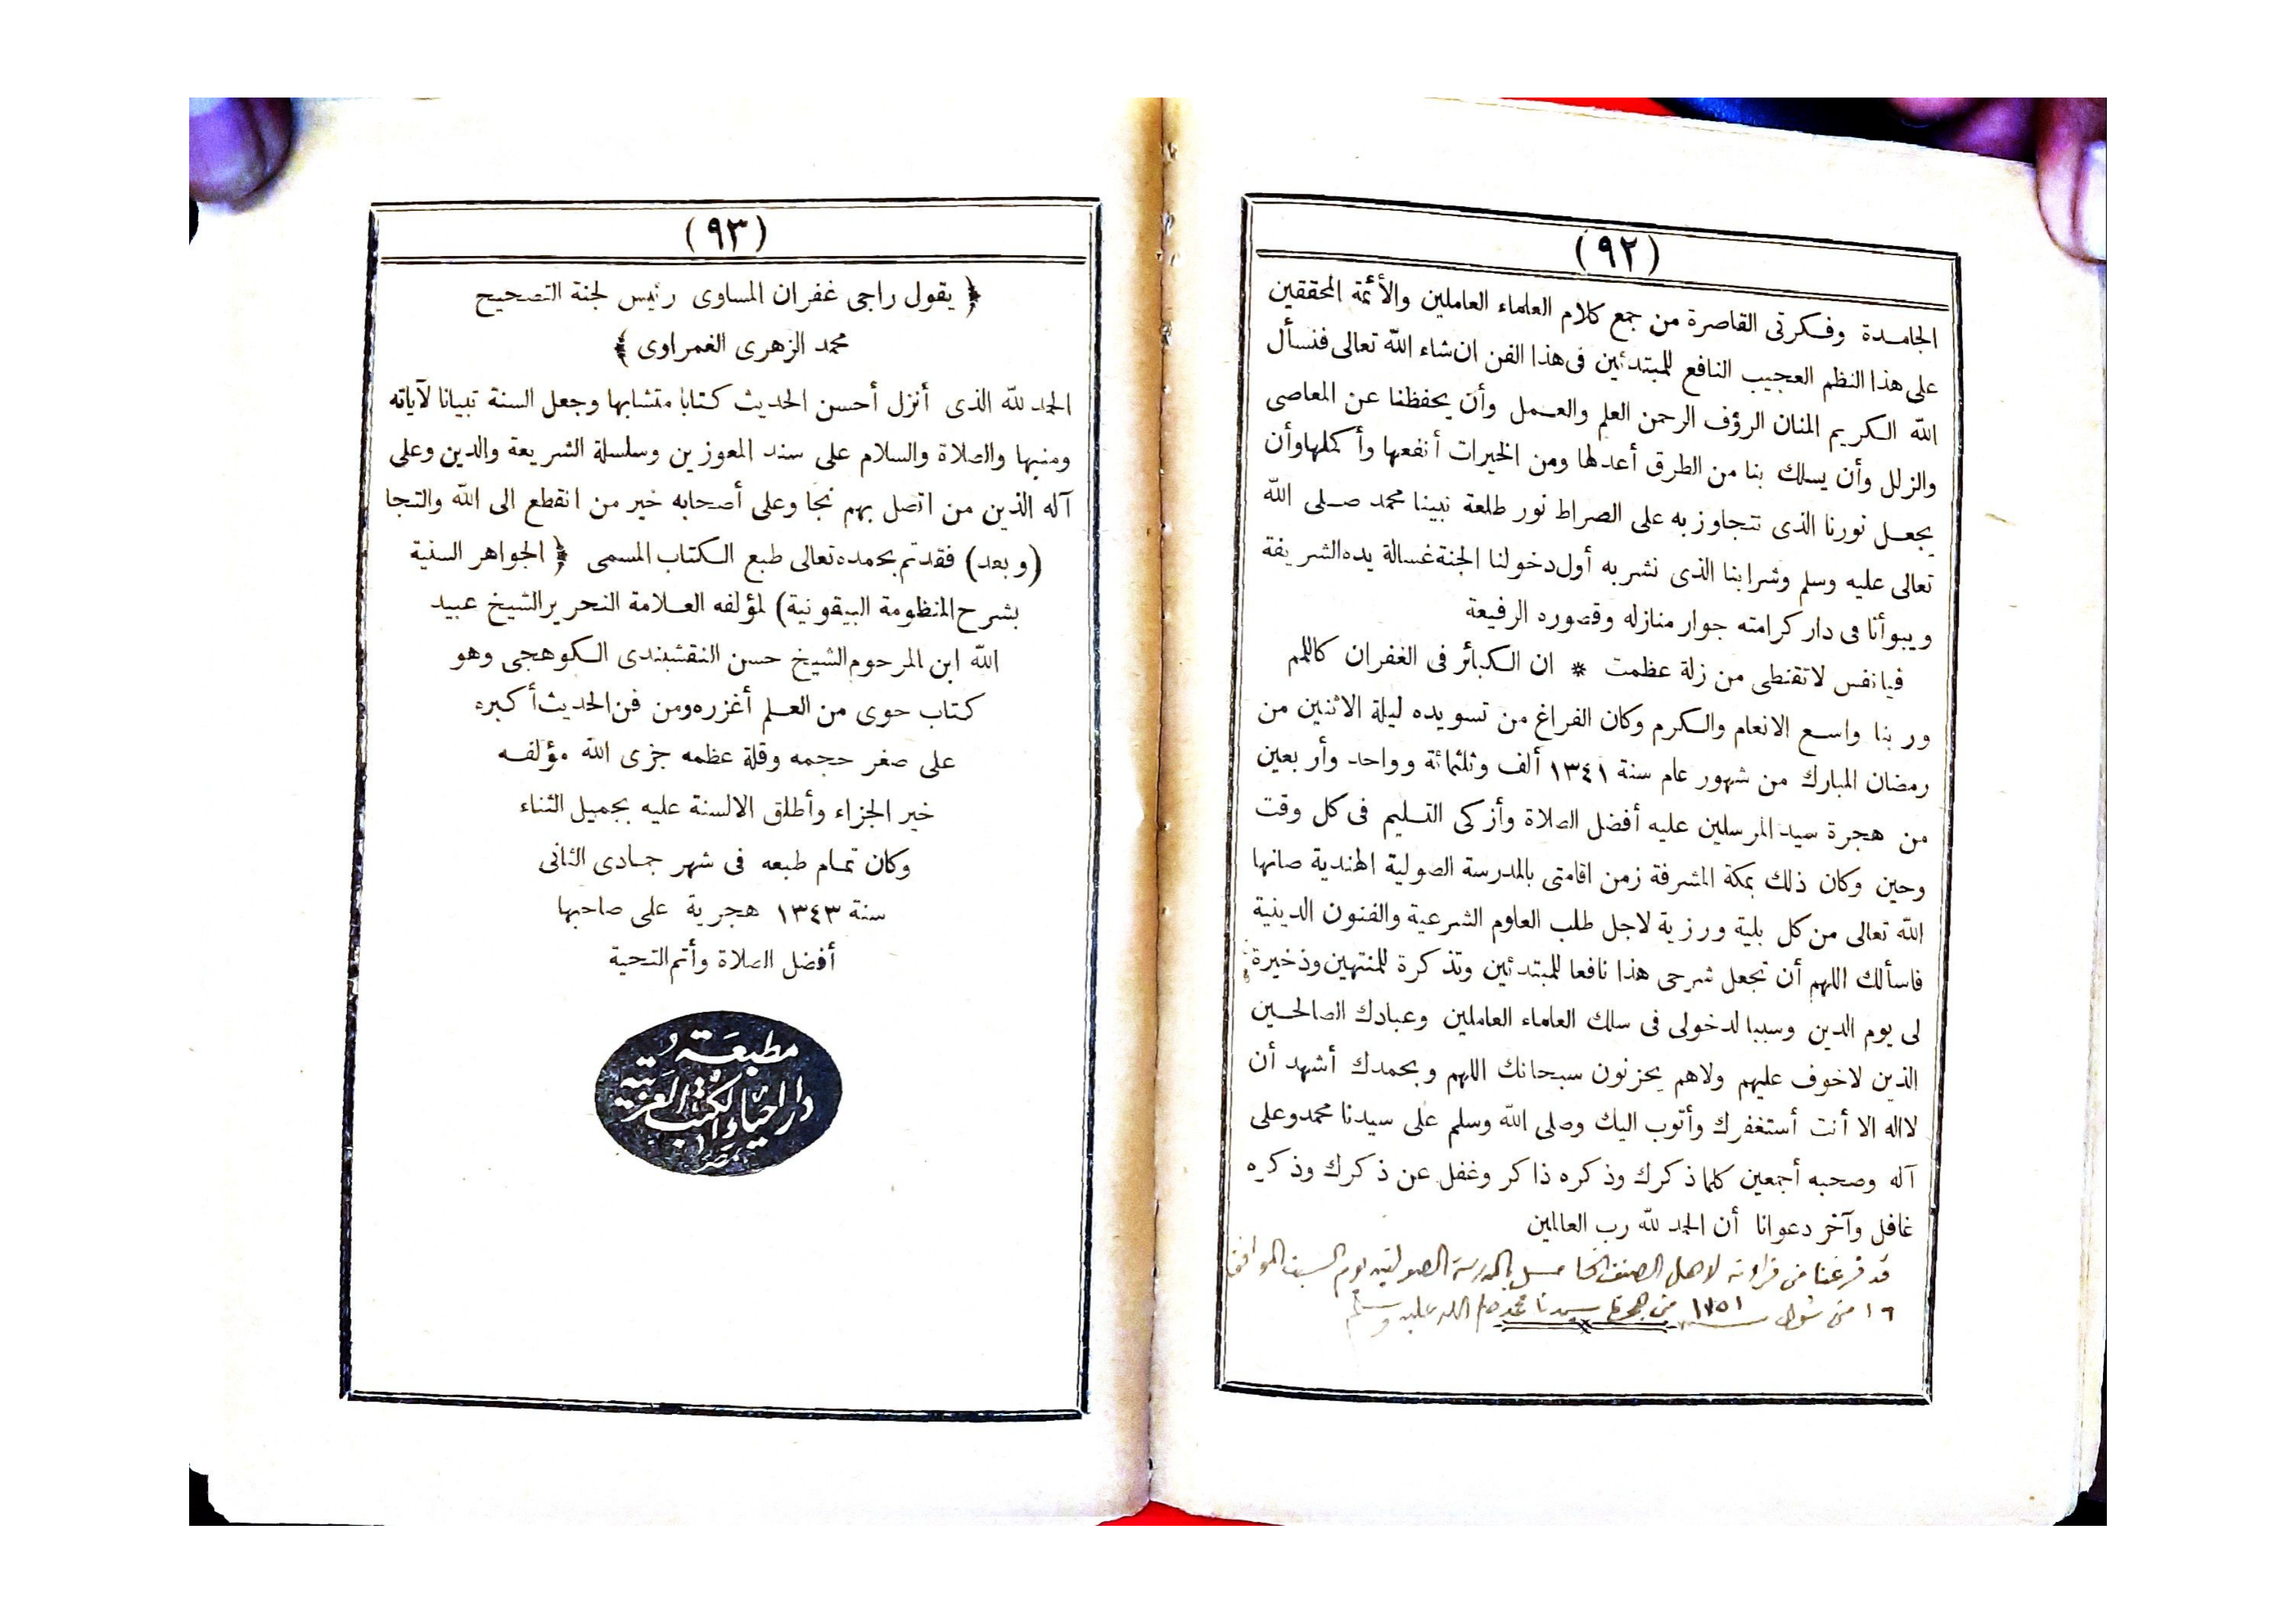 (٩٢)
الجامدة وفكرتى القاصرة من جمع كلام العلماء العاملين والأئمة المحققين
على هذا النظم العجيب النافع للمبتدئين فى هذا الفن ان شاء الله تعالى فنسأل
الله الكريم المنان الرؤف الرحمن العلم والعمل وأن يحفظنا عن المعاصى
والزلل وأن يسلك بنا من الطرق أعدلها ومن الخيرات أنفعها وأكملها وأن
يجعل نورنا الذى تتجاوز به على الصراط نور طلعة نبينا محمد صلى الله
تعالى عليه وسلم وشرابنا الذى نشربه أول دخولنا الجنة غسالة يده الشريفة
ويبوأنا فى دار كرامته جوار منازله وقصوره الرفيعة
فيا نفس لا تقنطى من زلة عظمت * ان الكبائر فى الغفران كاللمم
وربنا واسع الانعام والكرم وكان الفراغ من تسويده ليلة الاثنين من
رمضان المبارك من شهور عام سنة ١٣٤١ ألف وثلثمائة وواحد وأربعين
من هجرة سيد المرسلين عليه أفضل الصلاة وأزكى التسليم فى كل وقت
وحين وكان ذلك بمكة المشرفة زمن اقامتى بالمدرسة الصولية الهندية صانها
الله تعالى من كل بلية ورزية لاجل طلب العلوم الشرعية والفنون الدينية
فاسألك اللهم أن تجعل شرحى هذا نافعا للمبتدئين وتذكرة للمنتهين وذخيرة
لى يوم الدين وسببا لدخولى فى سلك العلماء العاملين وعبادك الصالحين
الذين لاخوف عليهم ولاهم يحزنون سبحانك اللهم وبحمدك أشهد أن
لااله الا أنت أستغفرك وأتوب اليك وصلى الله وسلم على سيدنا محمد وعلى
آله وصحبه أجمعين كلما ذكرك وذكره ذاكر وغفل عن ذكرك وذكره
غافل وآخر دعوانا أن الحمد لله رب العالمين
قد فرغنا من قراءته لاهل الصنف الخامس بالمدرسة الصولتيه يوم السبت الموافق
١٦ من شوال سنة ١٣٥١ من هجرة سيدنا محمد صلى الله عليه وسلم
(٩٣)
﴿ يقول راجى غفران المساوى رئيس لجنة التصحيح
محمد الزهرى الغمراوى ﴾
الحمد لله الذى أنزل أحسن الحديث كتابا متشابها وجعل السنة تبيانا لآياته
ومنبها والصلاة والسلام على سند المعوزين وسلسلة الشريعة والدين وعلى
آله الذين من اتصل بهم نجا وعلى أصحابه خير من انقطع الى الله والتجا
(وبعد) فقد تم بحمده تعالى طبع الكتاب المسمى ﴿ الجواهر السنية
بشرح المنظومة البيقونية) لمؤلفه العلامة النحرير الشيخ عبيد
الله ابن المرحوم الشيخ حسن النقشبندى الكوهجى وهو
كتاب حوى من العلم أغزره ومن فن الحديث أكبره
على صغر حجمه وقلة عظمه جزى الله مؤلفه
خير الجزاء وأطلق الالسنة عليه بجميل الثناء
وكان تمام طبعه فى شهر جمادى الثانى
سنة ١٣٤٣ هجرية على صاحبها
أفضل الصلاة وأتم التحية
مطبعة
دار احياء الكتب العربية
بمصر